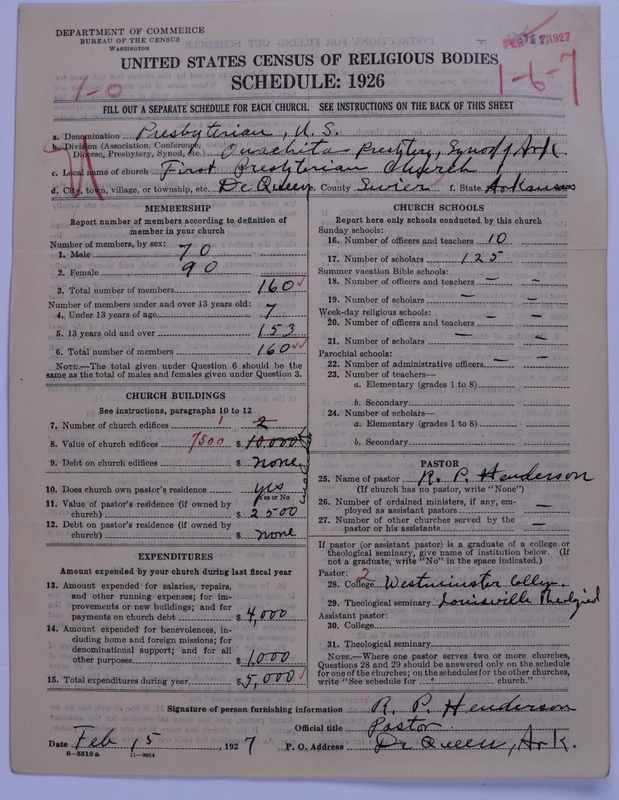 DEPARTMENT OF COMMERCE
BUREAU OF THE CENSUS
WASHINGTON
FEB 17 1927
UNITED STATES CENSUS OF RELIGIOUS BODIES
SCHEDULE: 1926
1-0
1-6-7
FILL OUT A SEPARATE SCHEDULE FOR EACH CHURCH. SEE INSTRUCTIONS ON THE BACK OF THIS SHEET
a. Denomination Presbyterian, U.S.
b. Division (Association, Conference, Diocese, Presbytery, Synod, etc.) Ouachita Presbytery, Synod of Ark.
c. Local name of church First Presbyterian Church
d. City, town, village, or township, etc. De Queen e. County Sevier f. State Arkansas
MEMBERSHIP
Report number of members according to definition of
member in your church
Number of members, by sex:
1. Male 70
2. Female 90
3. Total number of members 160
Number of members under and over 13 years old:
4. Under 13 years of age 7
5. 13 years old and over 153
6. Total number of members 160
NOTE.—The total given under Question 6 should be
same as the total of males and females given under Question 3.
CHURCH BUILDINGS
See instructions, paragraphs 10 to 12
7. Number of church edifices 1 2
8. Value of church edifices 7500 $ 10,000
9. Debt on church edifices $ none
10. Does church own pastor's residence yes
Yes or No
11. Value of pastor's residence (if owned by
church) $ 2500
12. Debt on pastor's residence (if owned by
church) $ none
EXPENDITURES
Amount expended by your church during last fiscal year
13. Amount expended for salaries, repairs,
and other running expenses; for im-
provements or new buildings; and for
payments on church debt $ 4,000
14. Amount expended for benevolences, in-
cluding home and foreign missions; for
denominational support; and for all
other purposes $ 1000
15. Total expenditures during year $ 5,000
CHURCH SCHOOLS
Report here only schools conducted by this church
Sunday schools:
16. Number of officers and teachers 10
17. Number of scholars 125
Summer vacation Bible schools:
18. Number of officers and teachers — —
19. Number of scholars — —
Week-day religious schools:
20. Number of officers and teachers — —
21. Number of scholars — —
Parochial schools:
22. Number of administrative officers — —
23. Number of teachers—
a. Elementary (grades 1 to 8)
b. Secondary
24. Number of scholars—
a. Elementary (grades 1 to 8)
b. Secondary
PASTOR
25. Name of pastor R. P. Henderson
(If church has no pastor, write "None")
26. Number of ordained ministers, if any, em-
ployed as assistant pastors —
27. Number of other churches served by the
pastor or his assistants —
If pastor (or assistant pastor) is a graduate of a college or
theological seminary, give name of institution below. (If
not a graduate, write "No" in the space indicated.)
Pastor: 2
28. College Westminster College
29. Theological seminary Louisville
Assistant pastor:
30. College
31. Theological seminary
NOTE.—Where one pastor serves two or more churches,
Questions 28 and 29 should be answered only on the schedule
for one of the churches; on the schedules for the other churches,
write "See schedule for church."
Signature of person furnishing information R. P. Henderson
Official title Pastor
Date Feb 15, 1927 P. O. Address De Queen, Ark.
8-5518a 11-9054